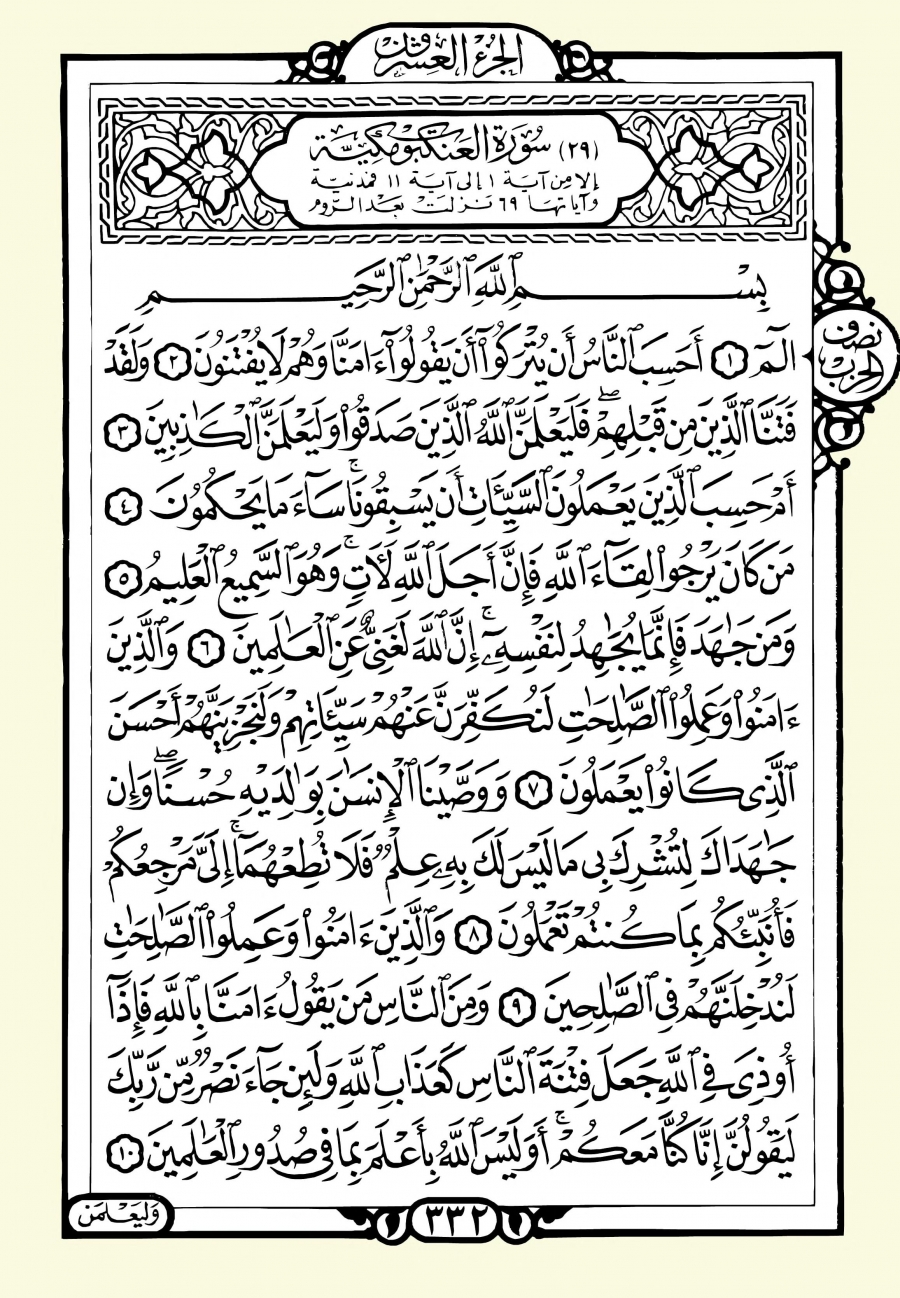 الجزء العشرون
(٢٩) سُورَةُ العَنكَبُوت مَكِيَّة
إلا من آية ١ إلى آية ١١ فمدنية
وآياتها ٦٩ نزلت بعد الروم
بِسْمِ ٱللَّهِ ٱلرَّحْمَٰنِ ٱلرَّحِيمِ
نصف
الحزب
الٓمٓ ١ أَحَسِبَ ٱلنَّاسُ أَن يُتْرَكُوٓا۟ أَن يَقُولُوٓا۟ ءَامَنَّا وَهُمْ لَا يُفْتَنُونَ ٢ وَلَقَدْ
فَتَنَّا ٱلَّذِينَ مِن قَبْلِهِمْ ۖ فَلَيَعْلَمَنَّ ٱللَّهُ ٱلَّذِينَ صَدَقُوا۟ وَلَيَعْلَمَنَّ ٱلْكَٰذِبِينَ ٣
أَمْ حَسِبَ ٱلَّذِينَ يَعْمَلُونَ ٱلسَّيِّـَٔاتِ أَن يَسْبِقُونَا ۚ سَآءَ مَا يَحْكُمُونَ ٤
مَن كَانَ يَرْجُوا۟ لِقَآءَ ٱللَّهِ فَإِنَّ أَجَلَ ٱللَّهِ لَـَٔاتٍ ۚ وَهُوَ ٱلسَّمِيعُ ٱلْعَلِيمُ ٥
وَمَن جَٰهَدَ فَإِنَّمَا يُجَٰهِدُ لِنَفْسِهِۦٓ ۚ إِنَّ ٱللَّهَ لَغَنِىٌّ عَنِ ٱلْعَٰلَمِينَ ٦ وَٱلَّذِينَ
ءَامَنُوا۟ وَعَمِلُوا۟ ٱلصَّٰلِحَٰتِ لَنُكَفِّرَنَّ عَنْهُمْ سَيِّـَٔاتِهِمْ وَلَنَجْزِيَنَّهُمْ أَحْسَنَ
ٱلَّذِى كَانُوا۟ يَعْمَلُونَ ٧ وَوَصَّيْنَا ٱلْإِنسَٰنَ بِوَٰلِدَيْهِ حُسْنًا ۖ وَإِن
جَٰهَدَاكَ لِتُشْرِكَ بِى مَا لَيْسَ لَكَ بِهِۦ عِلْمٌ فَلَا تُطِعْهُمَآ ۚ إِلَىَّ مَرْجِعُكُمْ
فَأُنَبِّئُكُم بِمَا كُنتُمْ تَعْمَلُونَ ٨ وَٱلَّذِينَ ءَامَنُوا۟ وَعَمِلُوا۟ ٱلصَّٰلِحَٰتِ
لَنُدْخِلَنَّهُمْ فِى ٱلصَّٰلِحِينَ ٩ وَمِنَ ٱلنَّاسِ مَن يَقُولُ ءَامَنَّا بِٱللَّهِ فَإِذَآ
أُوذِىَ فِى ٱللَّهِ جَعَلَ فِتْنَةَ ٱلنَّاسِ كَعَذَابِ ٱللَّهِ وَلَئِن جَآءَ نَصْرٌ مِّن رَّبِّكَ
لَيَقُولُنَّ إِنَّا كُنَّا مَعَكُمْ ۚ أَوَلَيْسَ ٱللَّهُ بِأَعْلَمَ بِمَا فِى صُدُورِ ٱلْعَٰلَمِينَ ١٠
وَلَيَعْلَمَن
٣٣٢